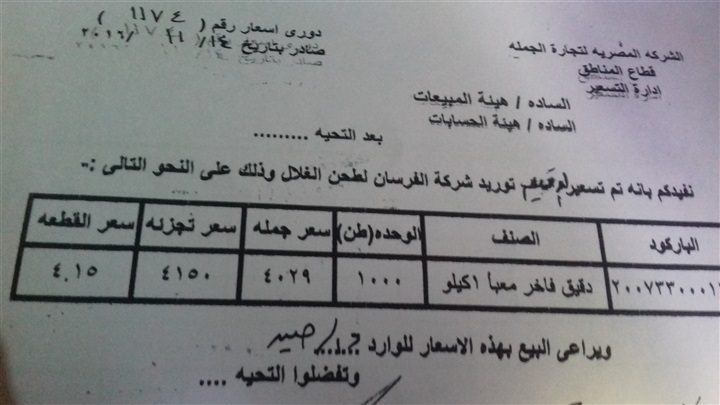 الشركه المصريه لتجارة الجمله
قطاع المناطق
إدارة التسعير
دورى اسعار رقم ( ١١٧٤ )
صادر بتاريخ ١٤/ ١١ /٢٠١٦
الساده / هيئة المبيعات
الساده / هيئة الحسابات
بعد التحيه .........
نفيدكم بانه تم تسعير توريد شركة الفرسان لطحن الغلال وذلك على النحو التالى :-
الباركود الصنف الوحده(طن) سعر جمله سعر تجزئه سعر القطعه
دقيق فاخر معبأ ١كيلو ١٠٠٠ ٤٠٢٩ ٤١٥٠ ٤.١٥
ويراعى البيع بهذه الاسعار للوارد
وتفضلوا التحيه ....